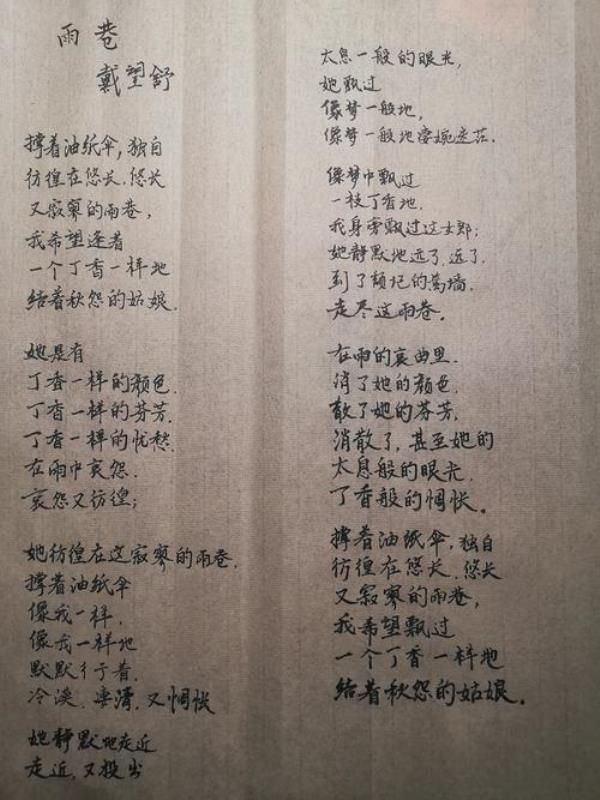 雨巷
戴望舒
撑着油纸伞，独自
彷徨在悠长、悠长
又寂寥的雨巷，
我希望逢着
一个丁香一样地
结着秋怨的姑娘.
她是有
丁香一样的颜色.
丁香一样的芬芳.
丁香一样的忧愁.
在雨中哀怨.
哀怨又彷徨；
她彷徨在这寂寥的雨巷.
撑着油纸伞
像我一样.
像我一样地
默默彳亍着.
冷漠.凄清.又惆怅
她静默地走近
走近，又投出
太息一般的眼光，
她飘过
像梦一般地，
像梦一般地凄婉迷茫.
像梦中飘过
一枝丁香地.
我身旁飘过这女郎；
她静默地远了.远了.
到了颓圮的篱墙.
走尽这雨巷.
在雨的哀曲里.
消了她的颜色.
散了她的芬芳.
消散了，甚至她的
太息般的眼光.
丁香般的惆怅。
撑着油纸伞，独自
彷徨在悠长、悠长
又寂寥的雨巷，
我希望飘过
一个丁香一样地
结着秋怨的姑娘。